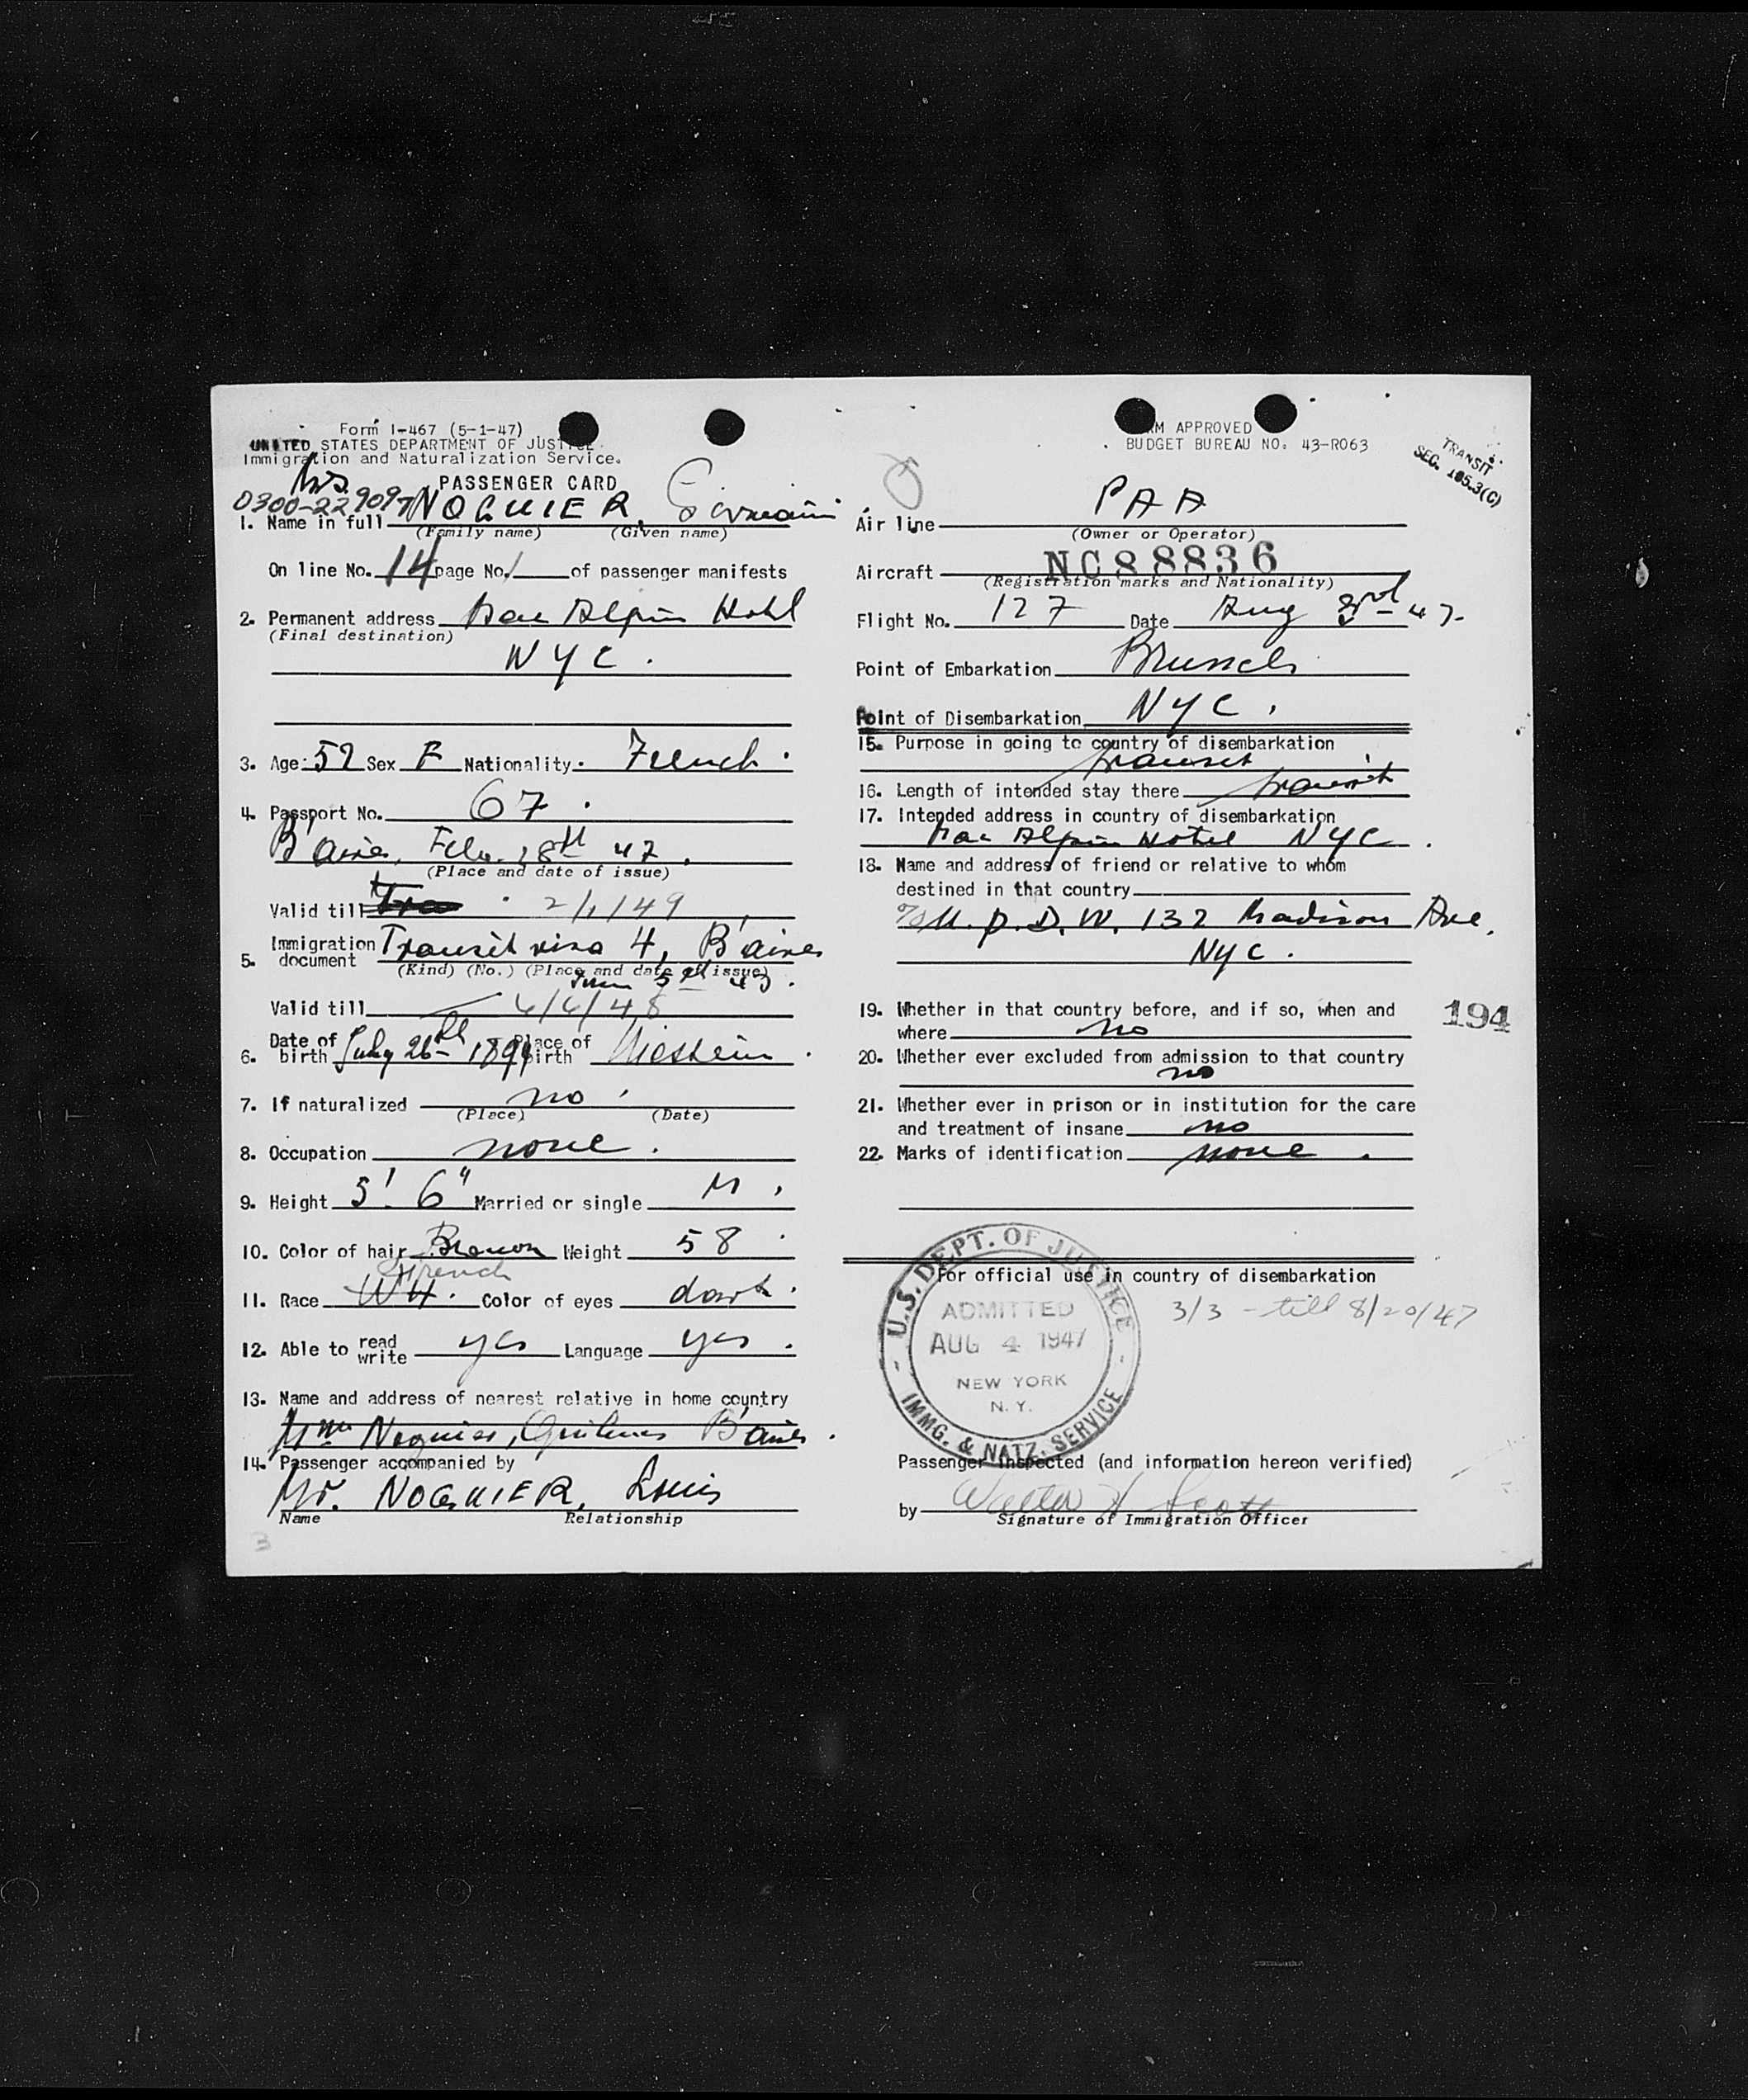 Form I-467 (5-1-47)
UNITED STATES DEPARTMENT OF JUSTICE
Immigration and Naturalization Service.
PASSENGER CARD
0300-229097
1. Name in full NOGUIER,
(Family name) (Given name)
On line No. 14 page No. 1 of passenger manifests
2. Permanent address Mac Alpin Hotel
(Final destination)
NYC.
3. Age: 52 Sex F Nationality. French.
4. Passport No. 67.
B'aires, Feb. 18th 47.
(Place and date of issue)
Valid till 2/1/49
5. Immigration document Transit visa 4, B'aires
(Kind) (No.) (Place and date of issue)
Valid till
6. Date of birth July 26th 1894 Place of birth
7. If naturalized no
(Place) (Date)
8. Occupation none.
9. Height 5' 6" Married or single M.
10. Color of hair Brown Weight 58
French
11. Race Color of eyes dark.
12. Able to read write yes Language yes.
13. Name and address of nearest relative in home country
Mme Noguier, Quilmes B'aires.
14. Passenger accompanied by
Mr. NOGUIER, Louis
Name Relationship
3
M APPROVED
BUDGET BUREAU NO. 43-R063
TRANSIT
SEC. 105.3(C)
Air line PAA
(Owner or Operator)
Aircraft NC88836
(Registration marks and Nationality)
Flight No. 127 Date Aug 3rd 47.
Point of Embarkation Brussels
Point of Disembarkation NYC.
15. Purpose in going to country of disembarkation
transit
16. Length of intended stay there transit
17. Intended address in country of disembarkation
Mac Alpin Hotel NYC.
18. Name and address of friend or relative to whom
destined in that country
132 Madison Ave.
NYC.
19. Whether in that country before, and if so, when and
where no
194
20. Whether ever excluded from admission to that country
no
21. Whether ever in prison or in institution for the care
and treatment of insane no
22. Marks of identification none.
For official use in country of disembarkation
3/3 - till 8/20/47
U.S. DEPT. OF JUSTICE
ADMITTED
AUG 4 1947
NEW YORK
N.Y.
IMMG. & NATZ. SERVICE
Passenger Inspected (and information hereon verified)
by Walter H Scott
Signature of Immigration Officer